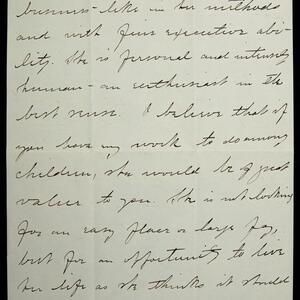 business-like in her methods
and with fine executive abi-
lity. She is personal and intensely
human - an enthusiast in the
best sense. I believe that if
you have any work to do among
children, she would be of great
value to you. She is not looking
for an easy place or large pay,
but for an opportunity to live
her life as she thinks it should